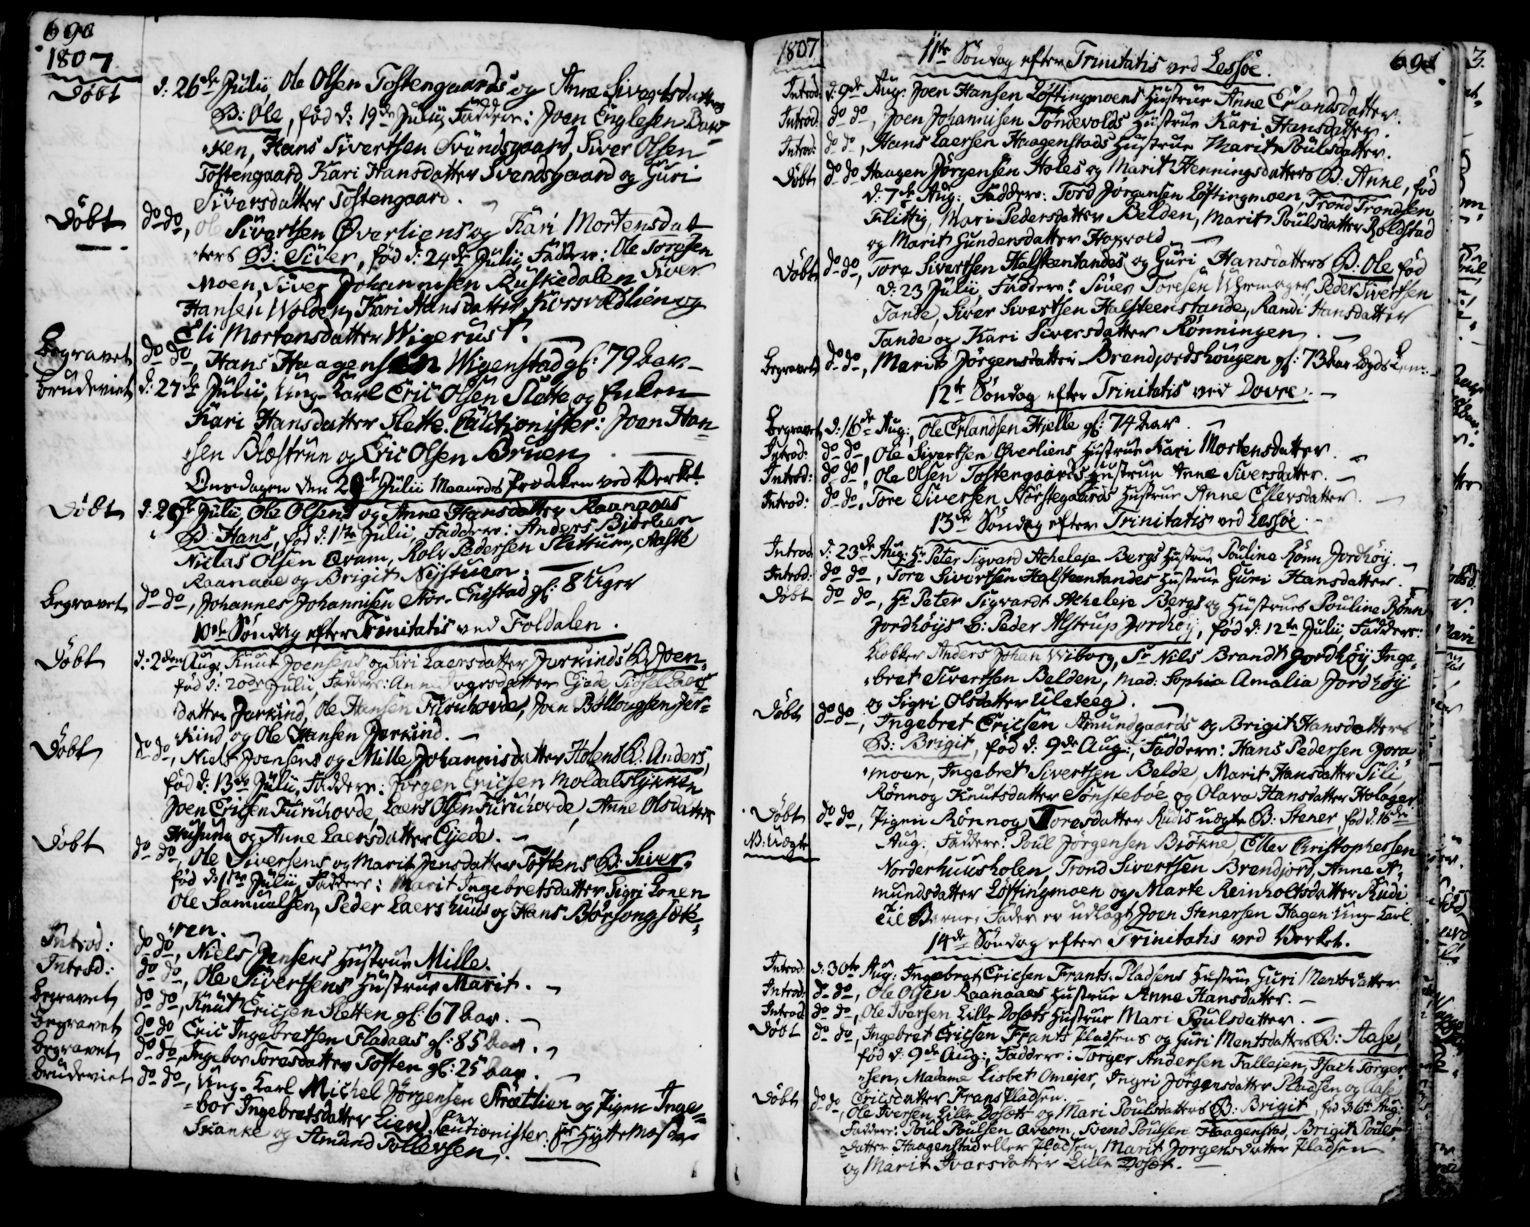 690
1807.
Döbt d: 26de Julii, Ole Olsen Tostengaards og Anne Sivertsdatters
B: Ole, föd d: 19de Julii, Faddere: Joen Englesen Bak-
ken, Hans Sivertsen Svendsgaard, Siver Olsen
Tostengaard, Kari Hansdatter Svendsgaard og Guri
Siversdatter Tostengaard.
Döbt do do, Ole Sivertsen Øverliens og Kari Mortensdat-
ters B: Siver, föd d: 24de Julii, Faddere: Ole Toresen
Moen, Siver Johannisen Ruskiedalen, Siver
Hansen Wolden, Kari Hansdatter Korsvedlien og
Eli Mortensdatter Wigerust.
Begravet do do, Hans Haagensen Wigenstad gl: 79 Aar.
Brudeviet d: 27de Julii, Ung Karl Eric Olsen Slette og Enken
Kari Hansdatter Slette. Cautionister: Joen Han-
sen Blæstrun og Eric Olsen Bruen.
Onsdagen den 29de Julii Maaneds Prædiken ved Verket.
Döbt d: 29de Julii Ole Olsens og Anne Hansdatter Raanaaes
B: Hans, föd d: 1ste Julii, Faddere: Anders
Niclas Olsen Qvam, Rolv Pedersen Slettum, Aaste
Raanaae og Brigit Nystuen.
Begravet do do, Johannes Johannisen Nor-Enstad gl: 8 Uger
10de Söndag efter Trinitatis ved Foldalen.
Döbt d: 2den Aug: Knut Joensens og Siri Laersdatter Jerkinds B: Joen,
föd d: 20de Julii, Faddere:
datter Jerkind, Ole Hansen Furuhovde, Joen Jer-
kind og Ole Hansen Jerkind.
Döbt do do, Niels Joensens og Mille Johannisdatter Holens B: Anders,
föd d: 13de Julii, Faddere: Jörgen Ericsen Moldalslykken
Joen Ericsen Furuhovde, Laers Olsen Furuhovde, Anne Olsdatter
Husum og Anne Laersdatter Gjede.
Döbt do do, Ole Siversens og Marit Jensdatter Toftens B: Siver,
föd d: 1ste Julii, Faddere: Marit Ingebretsdatter, Sigri Lonen
Ole Samuelsen, Peder Laers Huus og Hans Börsongsök-
ren.
Introd: do do, Niels Jensens Hustrue Mille.
Introd: do do, Ole Sivertsens Hustrue Marit.
Begravet do do, Knut Ericsen Sletten gl: 67 Aar.
Begravet do do, Eric Ingebretsen Fladaas gl: 85 Aar.
Begravet do do, Ingebor Toresdatter Toften gl: 25 Aar.
Brudeviet do do, Ung-Karl Michel Jörgensen Strætlien og Pigen Inge-
bor Ingebretsdatter Lien. Cautionister: Hr Hyttemester
Franke og Amund Tollevsen.
1807
691
11te Söndag efter Trinitatis ved Lessöe.
Introd: d: 9de Aug: Joen Hansen Löftingmoens Hustrue Anne Erlandsdatter.
Introd: do do, Joen Johannisen Tondevolds Hustrue Kari Hansdatter.
Introd: do do, Hans Laersen Haagenstads Hustrue Marit Poulsdatter.
Döbt do do Haagen Jörgensen Holes og Marit Henningsdatters B: Anne, föd
d: 7de Aug: Faddere: Tord Jörgensen Löftingmoen, Trond Trondsen
Flittig, Mari Pedersdatter Belden, Marit Poulsdatter Rolstad
og Marit Gundersdatter Hagvold
Döbt do do, Tore Sivertsen Halsteentandes og Guri Hansdatters B: Ole föd
d: 23 Julii, Faddere: Siver Toresen, Peder Sivertsen
Tande, Siver Sivertsen Halsteenstande, Randi Hansdatter
Tande og Kari Siversdatter Rönningen.
Begravet do do, Marit Jörgensdatter Brendjordshougen gl: 73 Aar Lægds Lem.
12te Söndag efter Trinitatis ved Dovre.
Begravet d: 16de Aug: Ole Erlandsen Hjelle gl: 74 Aar
Introd: do do, Ole Sivertsen Øverliens Hustrue Kari Mortensdatter.
Introd: do do, Ole Olsen Tostengaards Hustrue Anne Siversdatter.
Introd: do do, Tore Siversen Norstegaards Hustrue Anne Estersdatter.
13de Söndag efter Trinitatis ved Lessöe.
Introd: d: 23de Aug: Hr Peter Sigvard Acheleje Bergs Hustrue Pouline Rönn Jordhöy.
Introd: do do, Tore Sivertsen Halsteentandes Hustrue Guri Hansdatter.
Döbt do do, Hr Peter Sigvardt Acheleje Bergs og Hustrues Pouline Rönn
Jordhöys B: Peder Alstrup Jordhöy, föd d: 12te Julii, Faddere:
Klokker Anders Johan Wiborg, Sr Nils Brandt Jordhöy, Inge-
bret Sivertsen Belden, Mad: Sophia Amalia Jordhöy
og Sigri Olsdatter Uleteeg.
Döbt do do, Ingebret Ericsen Amundgaards og Brigit Hansdatters
B: Brigit, föd d: 9de Aug:, Faddere: Hans Pedersen Jora-
moen, Ingebret Sivertsen Belde, Marit Hansdatter Sili
Rönnog Knutsdatter Sönsteböe og Olava Hansdatter Holager
Döbt do do, Pigen Rönnog Toresdatter Rudis uægte B: Stener, föd d: 16de
N: Uægte Aug: Faddere: Poul Jörgensen Biökne, Ellev Christophersen
Norderhuusholen, Trond Sivertsen Brendjord, Anne A-
mundsdatter Löftingmoen og Marte Reinholtsdatter Rudi
Til Barnets Fader er udlagt Joen Stenersen Hagen Ung Karl
14de Söndag efter Trinitatis ved Verket.
Introd: d: 30te Aug: Ingebret Ericsen Frants-Pladsens Hustrue Guri Mentsdatter
Introd: do do, Ole Olsen Raanaaes Hustrue Anne Hansdatter.
Introd: do do, Ole Ivarsen Lille Dosets Hustrue Mari Poulsdatter.
Döbt do do, Ingebret Ericsen Frants Pladsens og Guri Mentsdatters B: Aase,
föd d: 9de Aug:, Faddere: Torger Andersen Fallejen, Isach Torger-
sen, Madame Lisbet Omejer, Ingri Jörgensdatter Pladsen og Aase
Ericsdatter Frans Pladsen.
Döbt do do, Ole Iversen Lille Dosets og Mari Poulsdatters B: Brigit, föd d: 16de Aug:
Faddere: Poul Poulsen Qveom, Svend Poulsen Haagenstad, Brigit Pouls-
datter Haagenstad eller Pladsen, Marit Jörgensdatter Pladsen
og Marit Ivarsdatter Lille Doset.